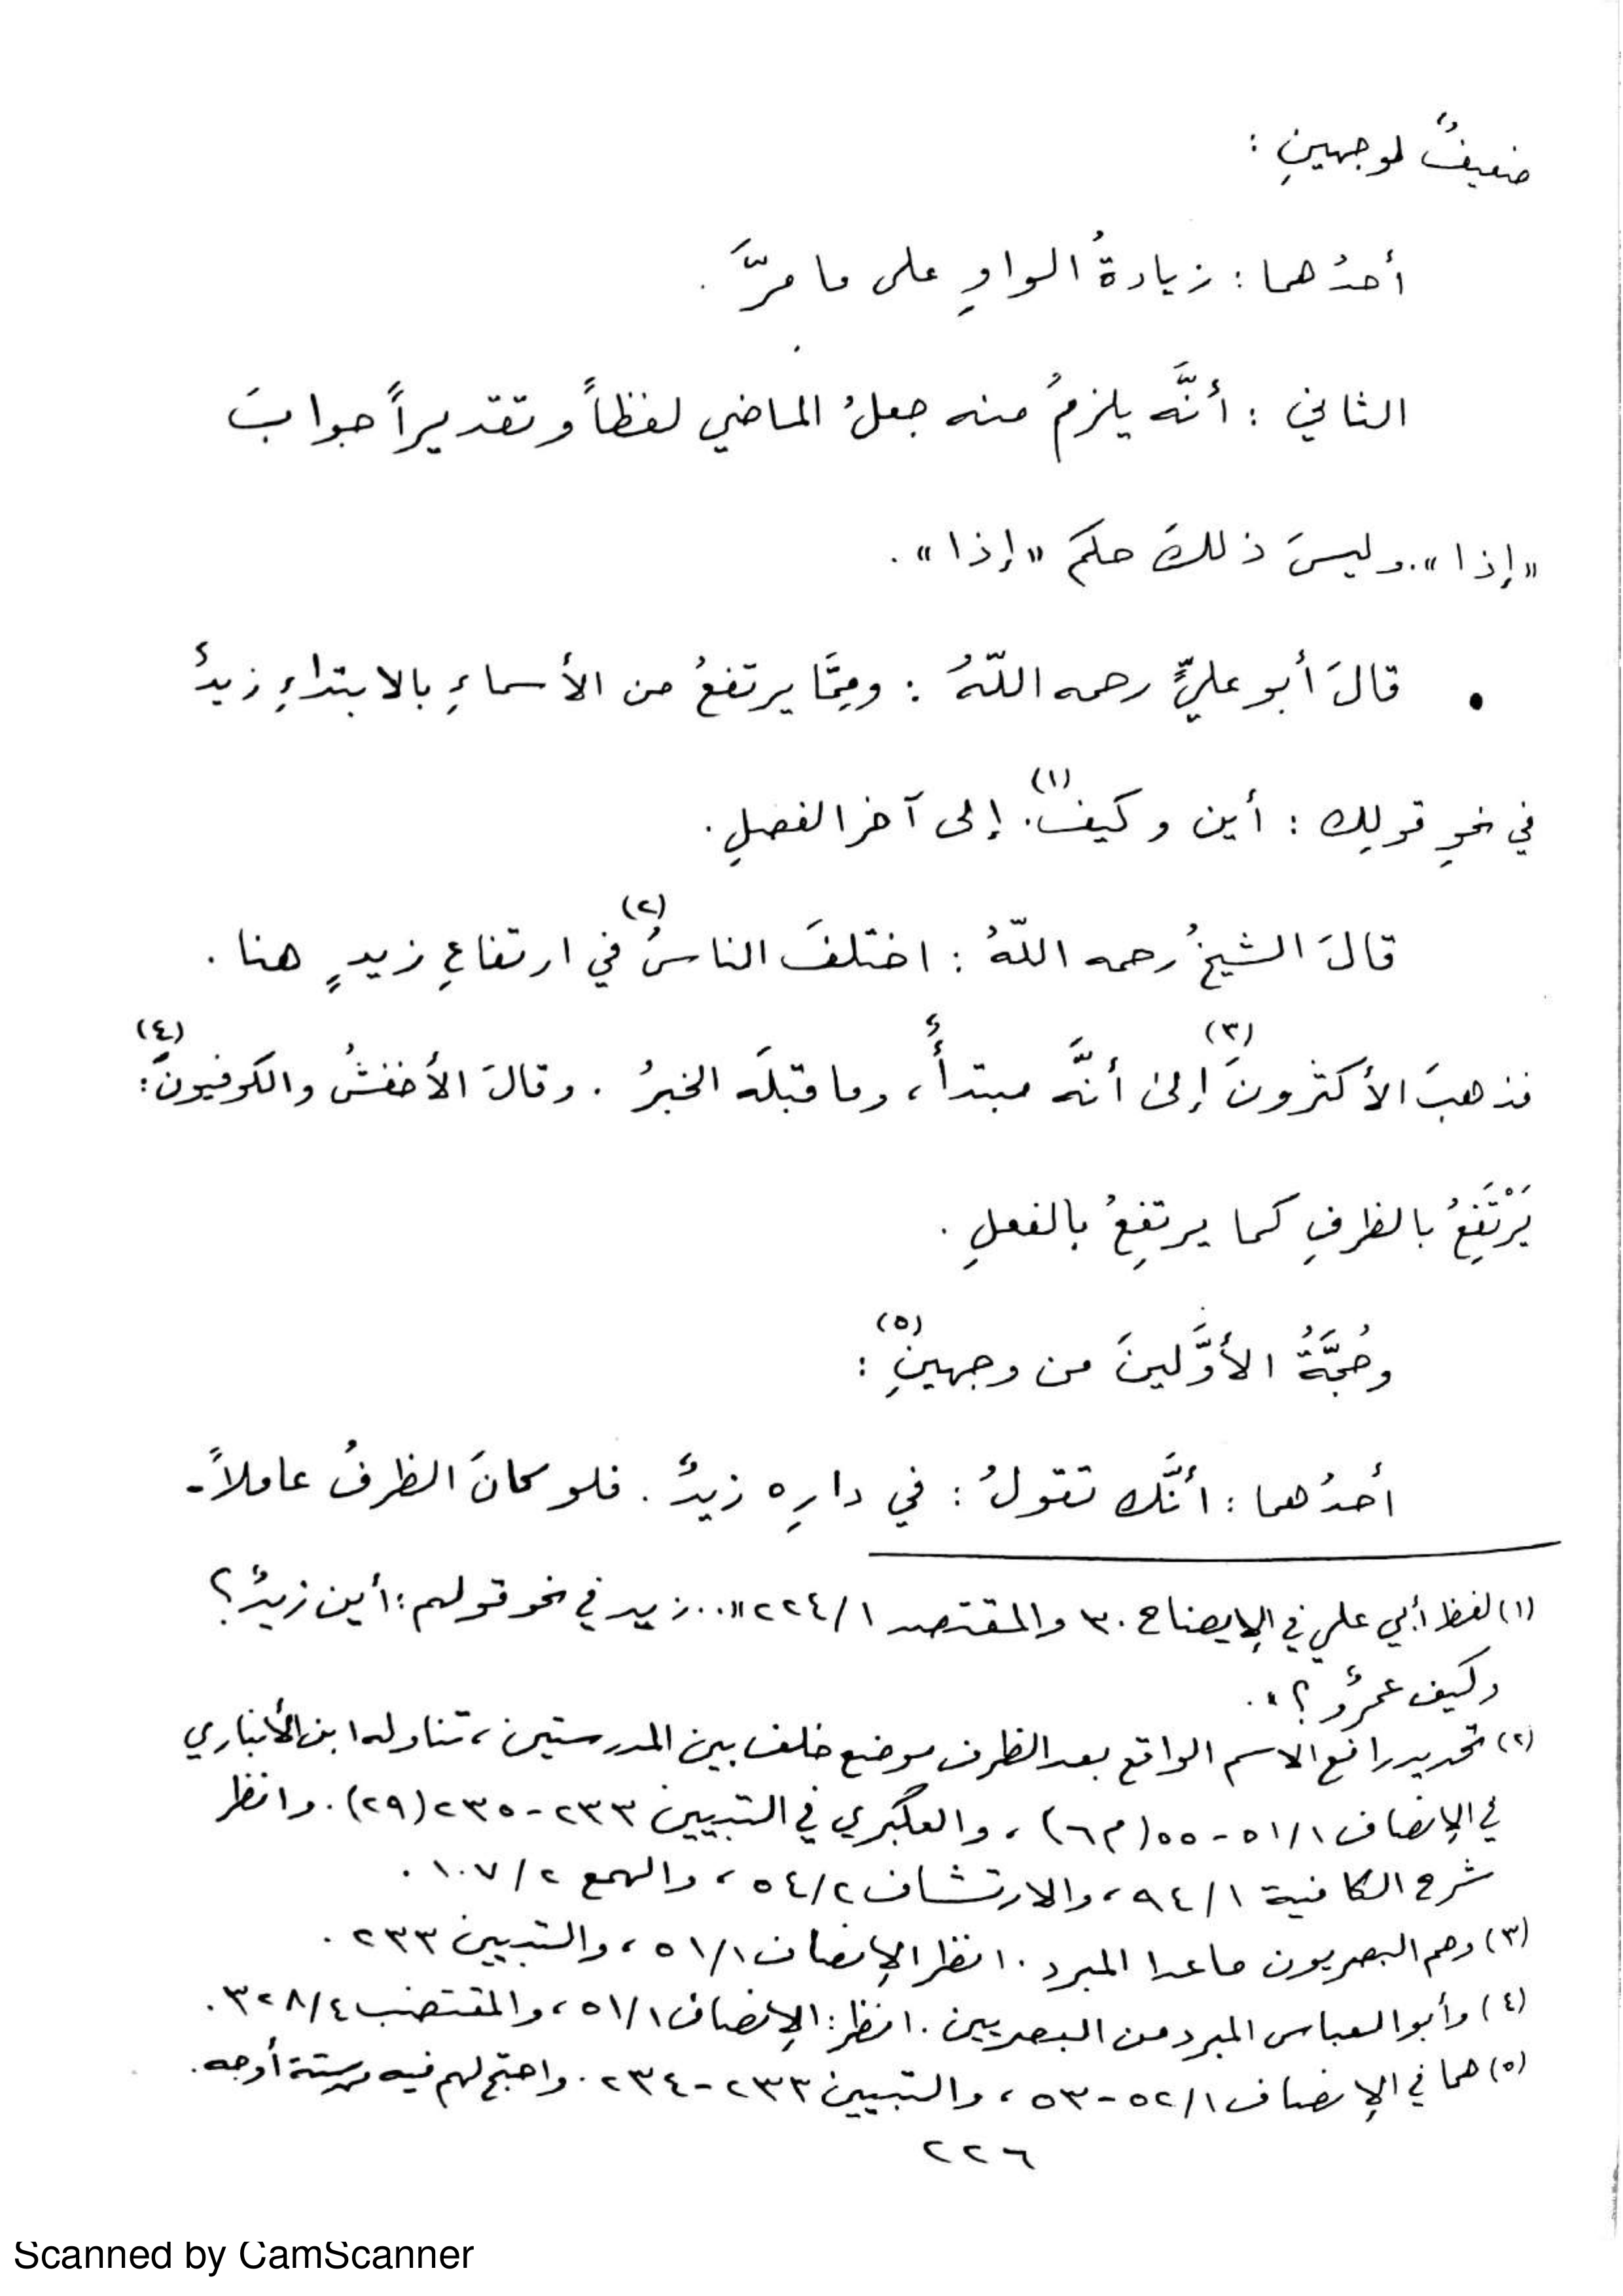 ضعيفٌ لوجهينِ :
أحدُهما : زيادةُ الواوِ على ما مرَّ .
الثاني : أنَّه يلزمُ منه جعلُ الماضي لفظاً وتقديراً جوابَ
«إذا» . وليسَ ذلكَ حكمَ «إذا» .
• قالَ أبو عليٍّ رحمه اللّهُ : وممَّا يرتفعُ من الأسماءِ بالابتداءِ زيدٌ
في نحوِ قولِك : أين وكيف(١). إلى آخر الفصلِ .
قالَ الشيخُ رحمه اللّهُ : اختلفَ الناسُ(٢) في ارتفاعِ زيدٍ هنا .
فذهبَ الأكثرونَ(٣) إلى أنَّه مبتدأٌ ، وما قبلَه الخبرُ . وقالَ الأخفشُ والكوفيونَ(٤):
يَرْتَفِعُ بالظرفِ كما يرتفِعُ بالفعلِ .
وحُجَّةُ الأوَّلينَ من وجهينِ(٥) :
أحدُهما : أنَّك تقولُ : في دارِه زيدٌ . فلو كانَ الظرفُ عاملاً-
(١) لفظ أبي علي في الإيضاح ٣٠ والمقتصد ٢٢٤/١ "... زيد في نحو قولهم : أين زيدٌ ؟
وكيف عمرٌو ؟ " .
(٢) تحديد رافع الاسم الواقع بعد الظرف موضع خلف بين المدرستين ، تناوله ابن الأنباري
في الإنصاف ٥١/١ - ٥٥ (م٦) ، والعكبري في التبيين ٢٣٣ - ٢٣٥ (٢٩) . وانظر
شرح الكافية ٩٤/١ ، والارتشاف ٥٤/٢ ، والهمع ١٠٧/٢ .
(٣) وهم البصريون ما عدا المبرد . انظر الإنصاف ٥١/١ ، والتبيين ٢٣٣ .
(٤) وأبو العباس المبرد من البصريين . انظر : الإنصاف ٥١/١ ، والمقتضب ٣٢٨/٤ .
(٥) هما في الإنصاف ٥٢/١ - ٥٣ ، والتبيين ٢٣٣ - ٢٣٤ . واحتج لهم فيه ستة أوجه .
٢٢٦
Scanned by CamScanner